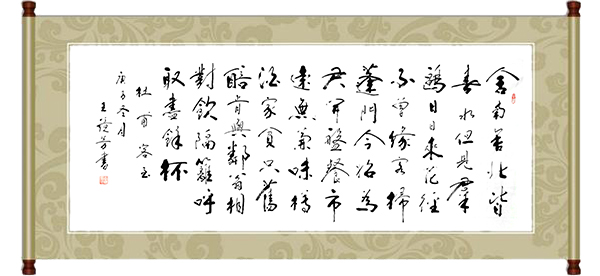 舍南舍北皆
春水但見羣
鷗日日來花徑
不曾緣客掃
蓬門今始為
君開盤餐市
遠無兼味樽
酒家貧只舊
醅肯與鄰翁相
對飲隔籬呼
取盡餘杯
杜甫客至
庚子冬月
王芳書